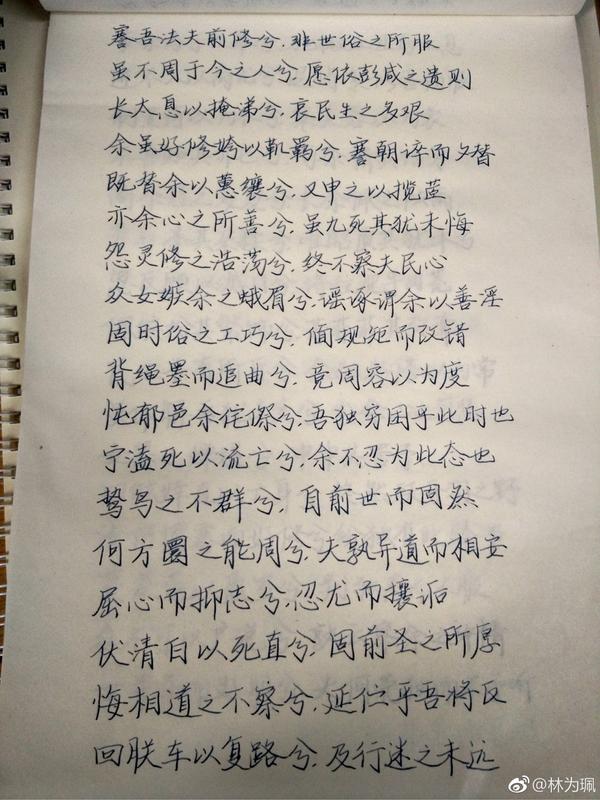 謇吾法夫前修兮，非世俗之所服
虽不周于今之人兮，愿依彭咸之遗则
长太息以掩涕兮，哀民生之多艰
余虽好修姱以鞿羁兮，謇朝谇而夕替
既替余以蕙纕兮，又申之以揽茝
亦余心之所善兮，虽九死其犹未悔
怨灵修之浩荡兮，终不察夫民心
众女嫉余之蛾眉兮，谣诼谓余以善淫
固时俗之工巧兮，偭规矩而改错
背绳墨而追曲兮，竞周容以为度
忳郁邑余侘傺兮，吾独穷困乎此时也
宁溘死以流亡兮，余不忍为此态也
鸷鸟之不群兮，自前世而固然
何方圜之能周兮，夫孰异道而相安
屈心而抑志兮，忍尤而攘诟
伏清白以死直兮，固前圣之所厚
悔相道之不察兮，延伫乎吾将反
回朕车以复路兮，及行迷之未远
@林为珮